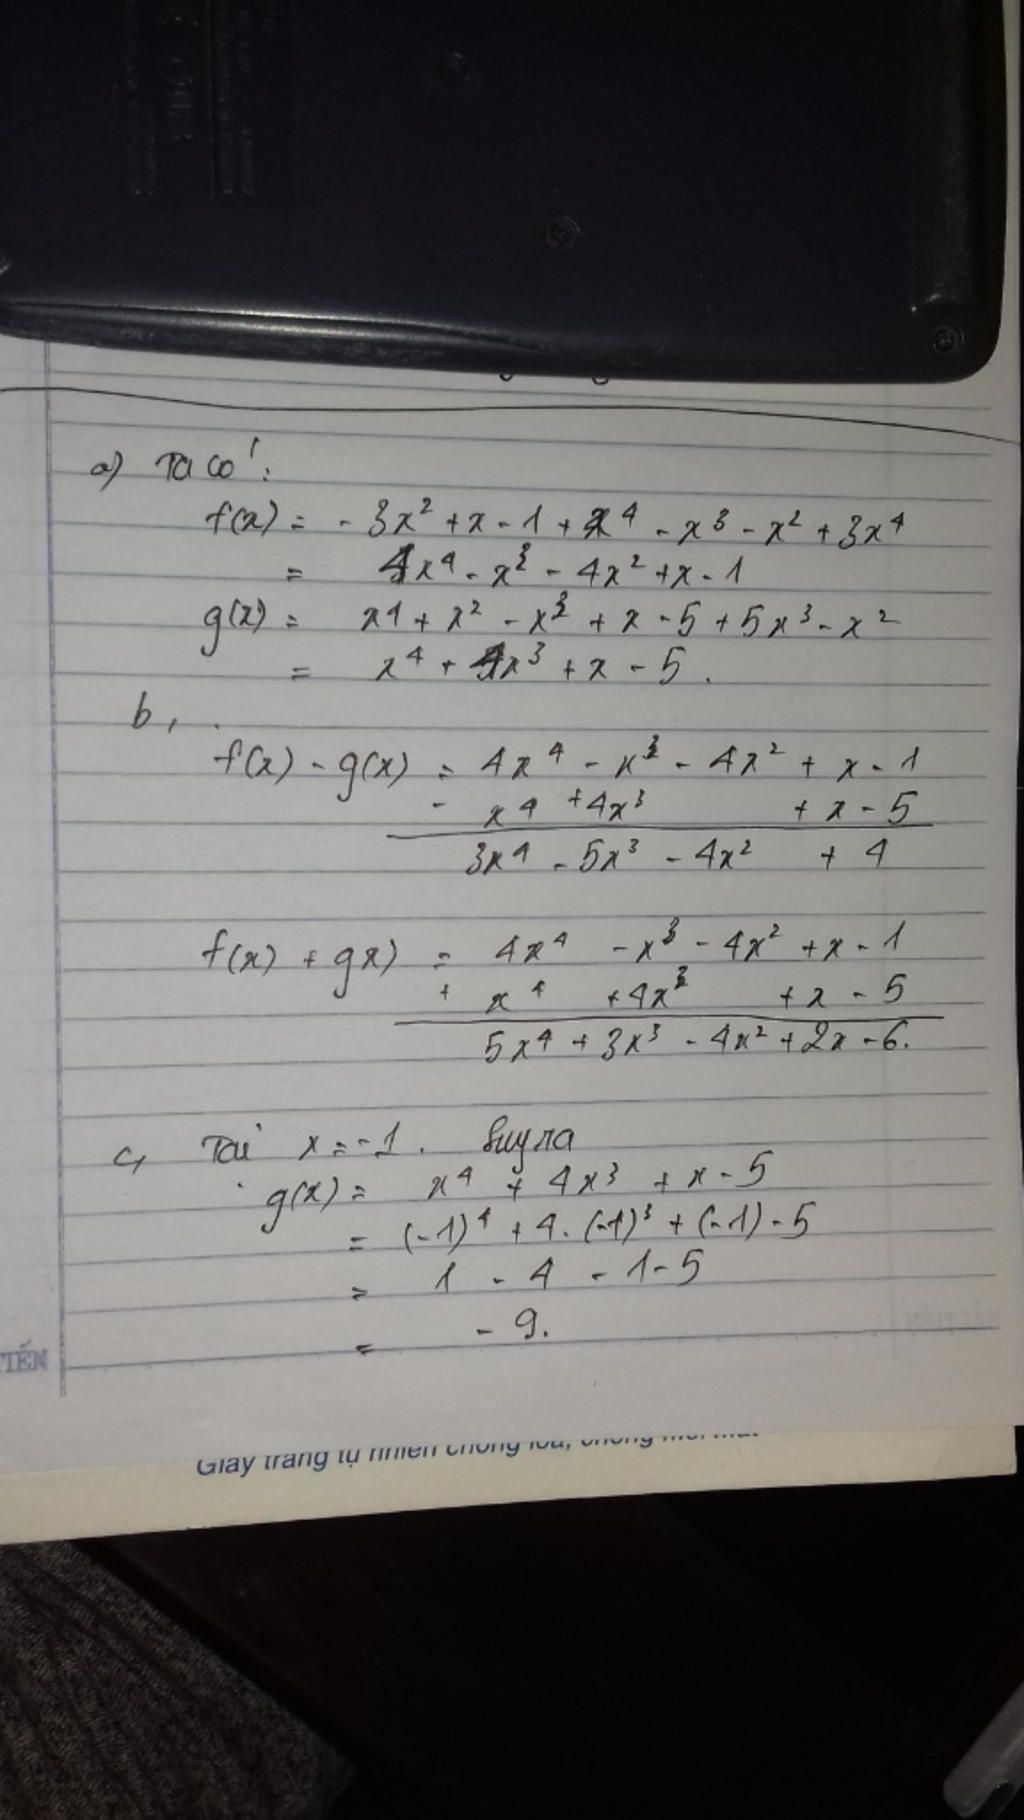 a) Ta có:
f(x) = - 3x² + x - 1 + x⁴ - x³ - x² + 3x⁴
= 4x⁴ - x³ - 4x² + x - 1
g(x) = x⁴ + x² - x³ + x - 5 + 5x³ - x²
= x⁴ + 4x³ + x - 5.
b,
f(x) - g(x) = 4x⁴ - x³ - 4x² + x - 1
- x⁴ + 4x³ + x - 5
3x⁴ - 5x³ - 4x² + 4
f(x) + gx) = 4x⁴ - x³ - 4x² + x - 1
+ x⁴ + 4x³ + x - 5
5x⁴ + 3x³ - 4x² + 2x - 6.
c, Tại x = -1. Suy ra
g(x) = x⁴ + 4x³ + x - 5
= (-1)⁴ + 4. (-1)³ + (-1) - 5
= 1 - 4 - 1 - 5
= - 9.
TIẾN
Giấy trắng tự nhiên chống lóa, chống